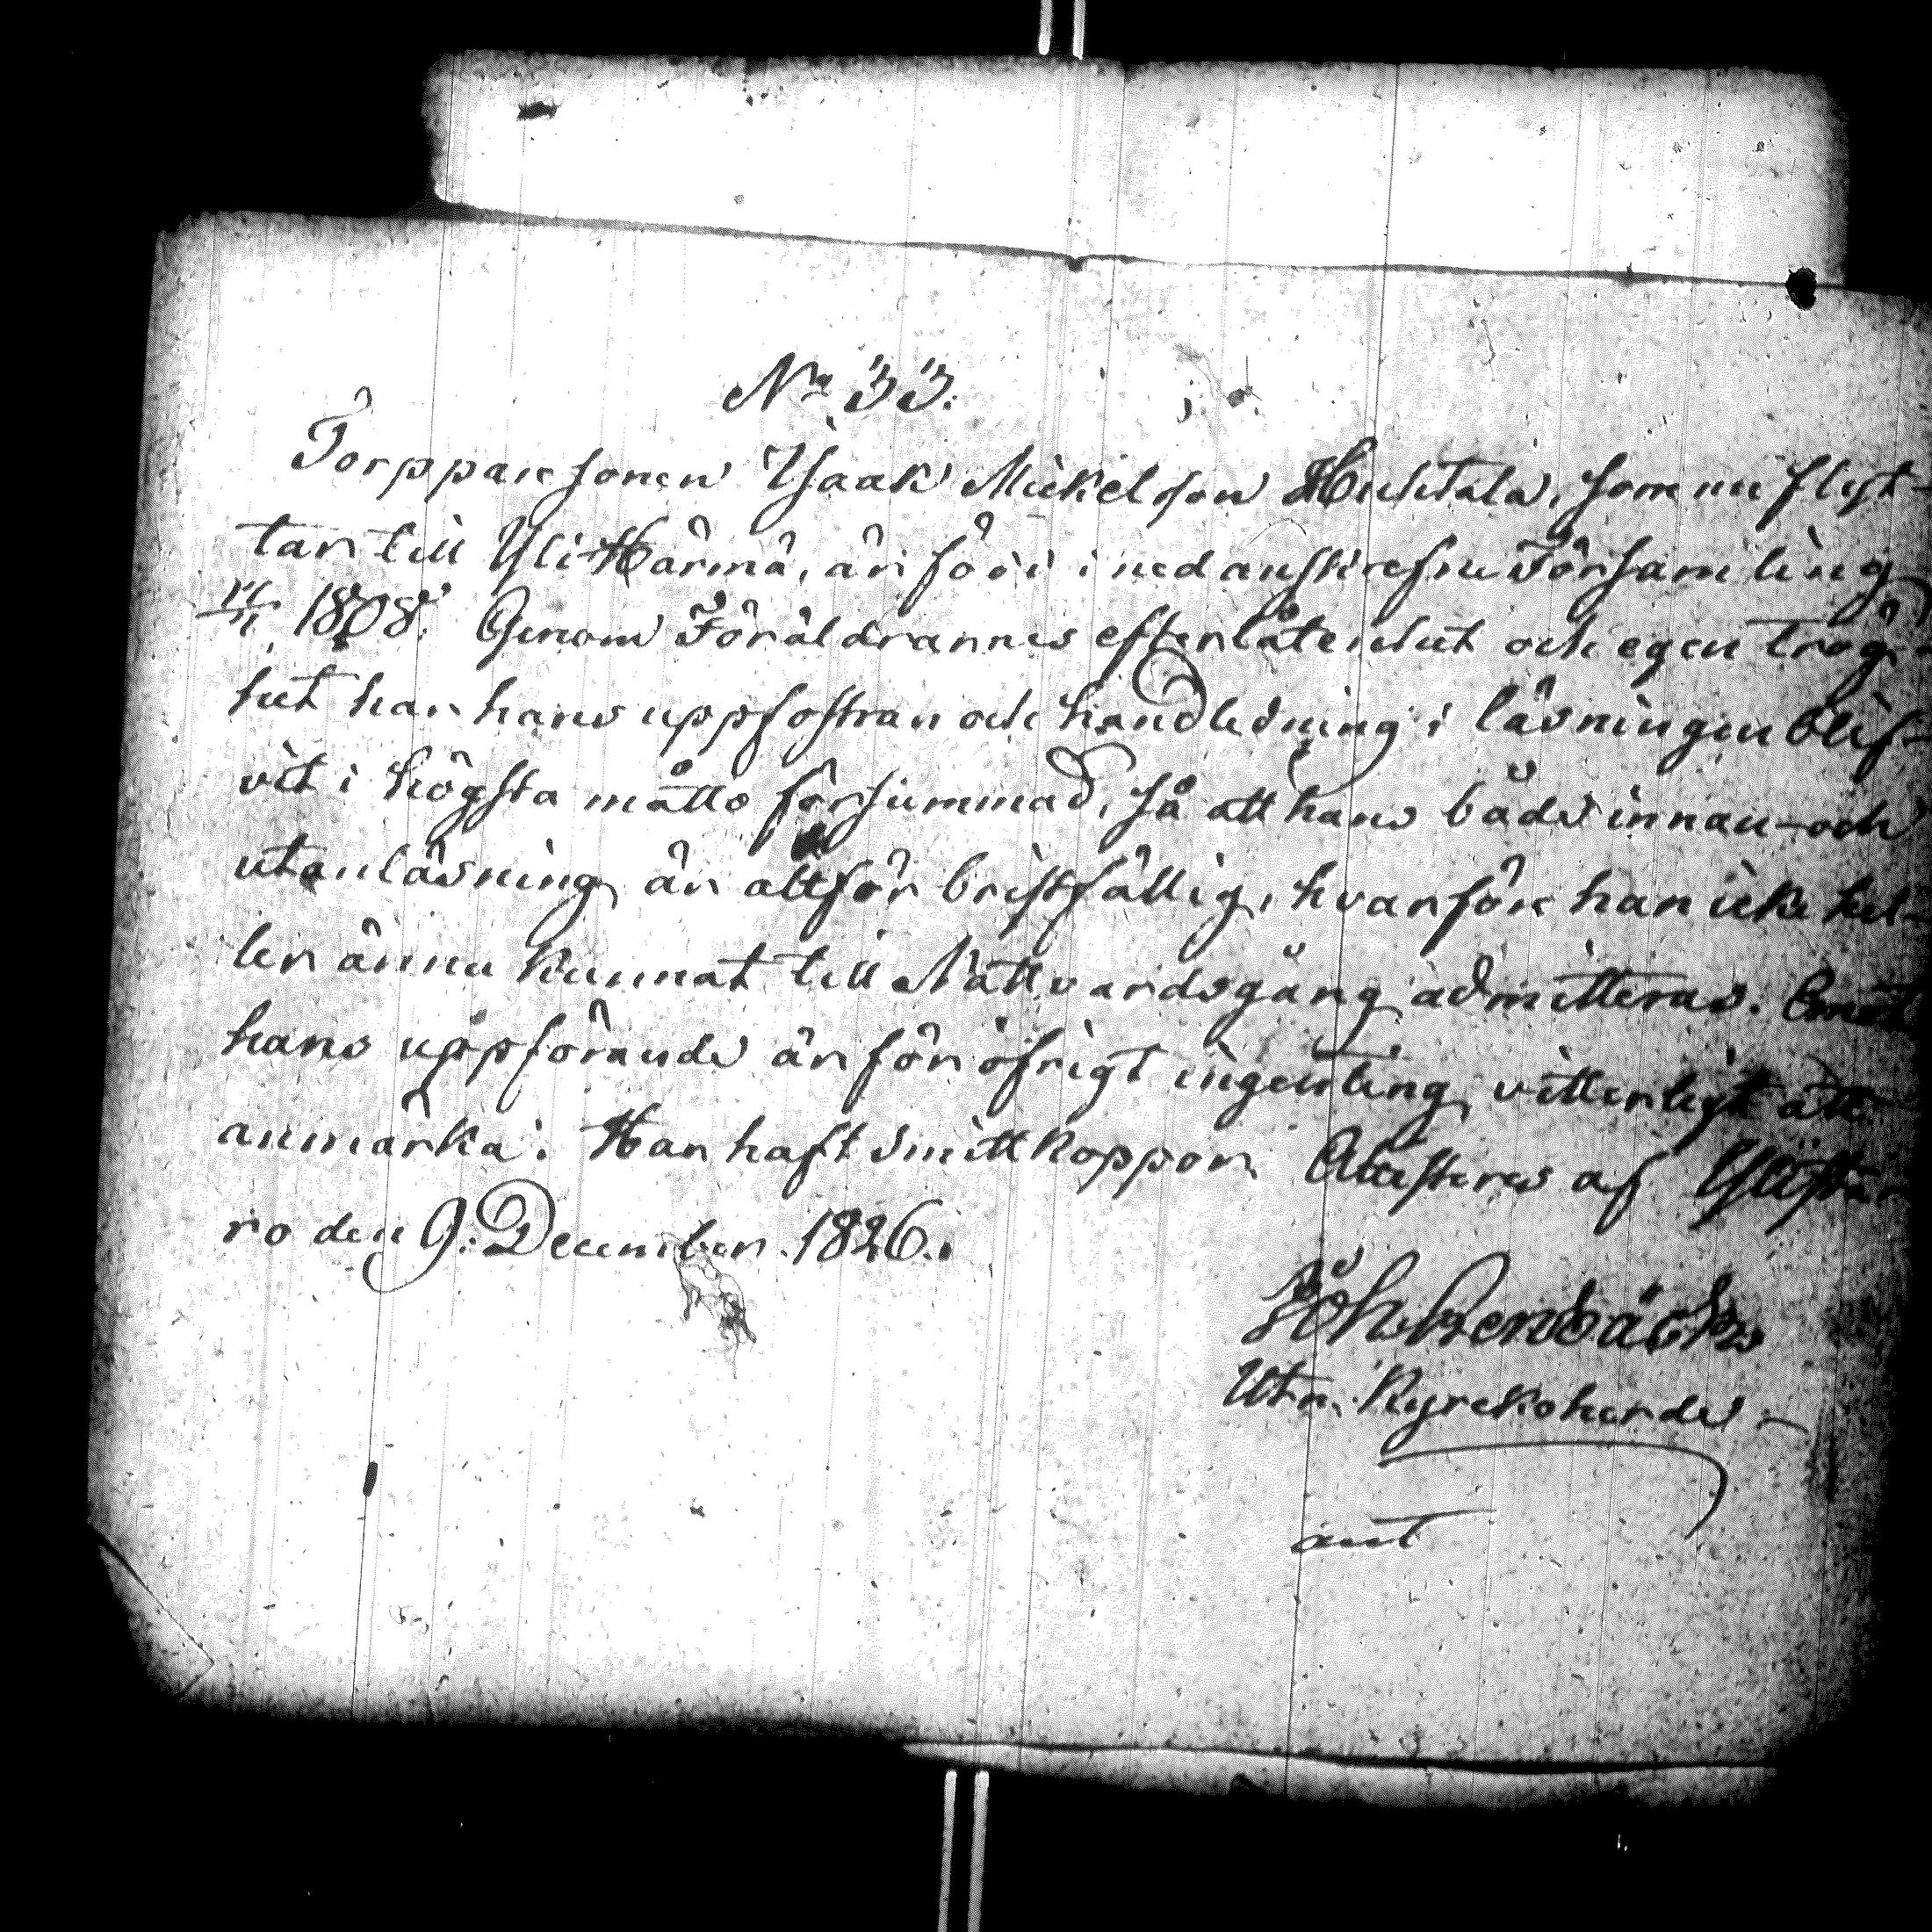 No 33.
Torppare sonen Isaak Mickelson Huhtala, som nu flyt-
tar till Yli Härmä, är född i nedanskrefne Församling
1808. Genom Föräldrarnes efterlåtenhet och egen trög-
het har hans uppfostran och handledning i läsningen blif-
vit i högsta måtto försummad, så att hans både innan- och
utanläsning är alltför bristfällig, hvarföre han icke hel-
ler ännu kunnat till Nattvardsgång admitteras. Emot
hans uppförande är för öfrigt ingenting vitterligt att
anmärka. Har haft smittkoppor. Attesteras af Ylistar
ro den 9. December 1826.
Utn. Kyrckoherde